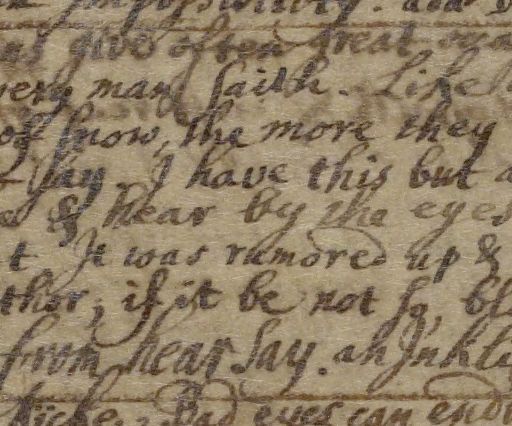 impossibility. and
give often great
very man saith. Like
of snow, the more they
say I have this but a
& hear by the eyes
t It was rumored up &
thor; if it be not so, bl
from hear say. an Inkli
Bad eyes can end